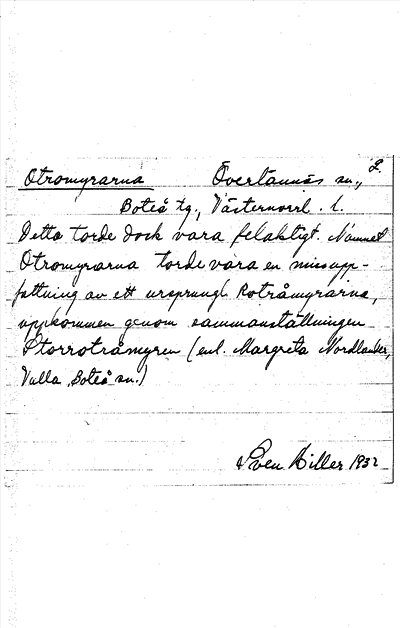 Otromyrarna Överlännäs sn., 2.
Boteå tg., Västernorrl. l.
Detta torde dock vara felaktigt. Namnet
Otromyrarna torde vara en missupp-
fattning av ett ursprungl. Rotråmyrarna,
uppkommen genom sammanställningen
Storrotråmyren (enl. Margreta Nordlander,
Valla, Boteå sn.)
Sven Hiller 1932